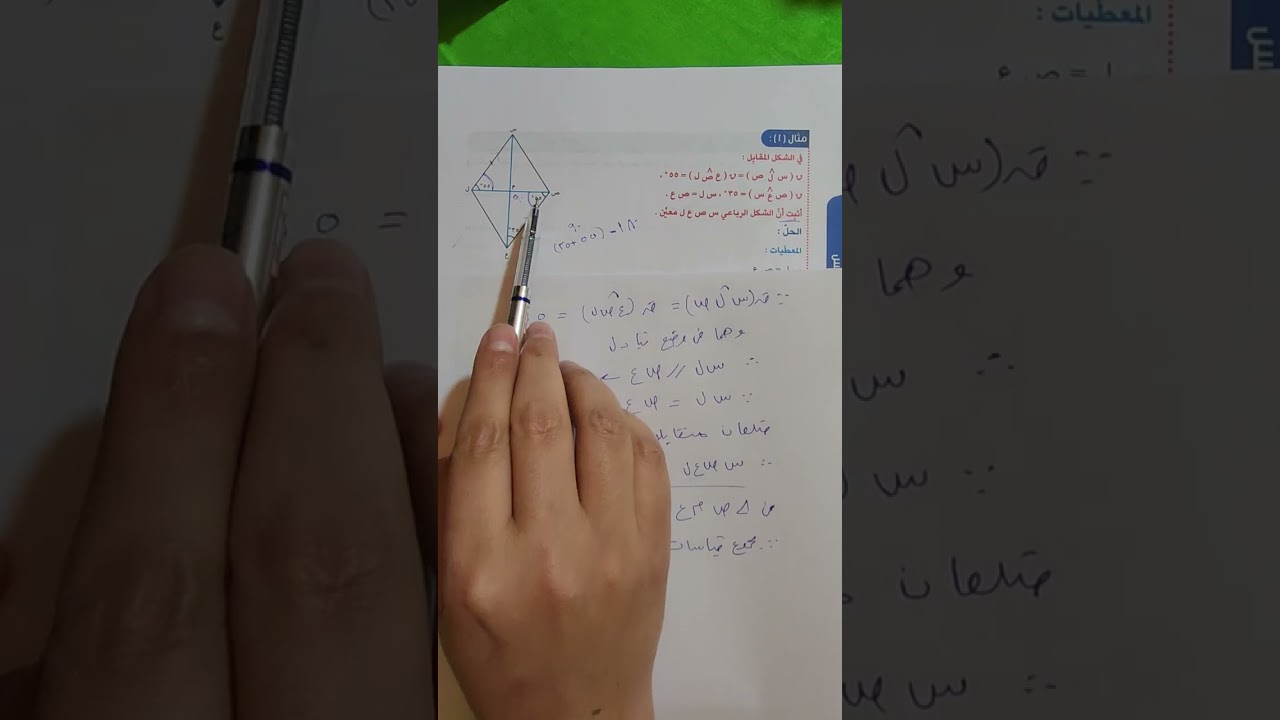 المعطيات :
مثال (١) :
في الشكل المقابل :
ن ( س ل̂ ص ) = ن ( ع ص̂ ل ) = ٥٥° ،
ن ( ص ع̂ س ) = ٣٥° ، س ل = ص ع .
أثبت أنّ الشكل الرباعي س ص ع ل معيَّن .
الحلّ :
المعطيات :
١٨٠ - (٥٥ + ٣٥)
٩٠
∵ ق (س ل̂ ص) = ق (ع ص̂ ل) =
وهما في وضع تبادل
∴ س ل // ص ع
∵ س ل = ص ع
ضلعان
∴ س ص ع ل
في △ ص م ع
∵ مجموع قياسات